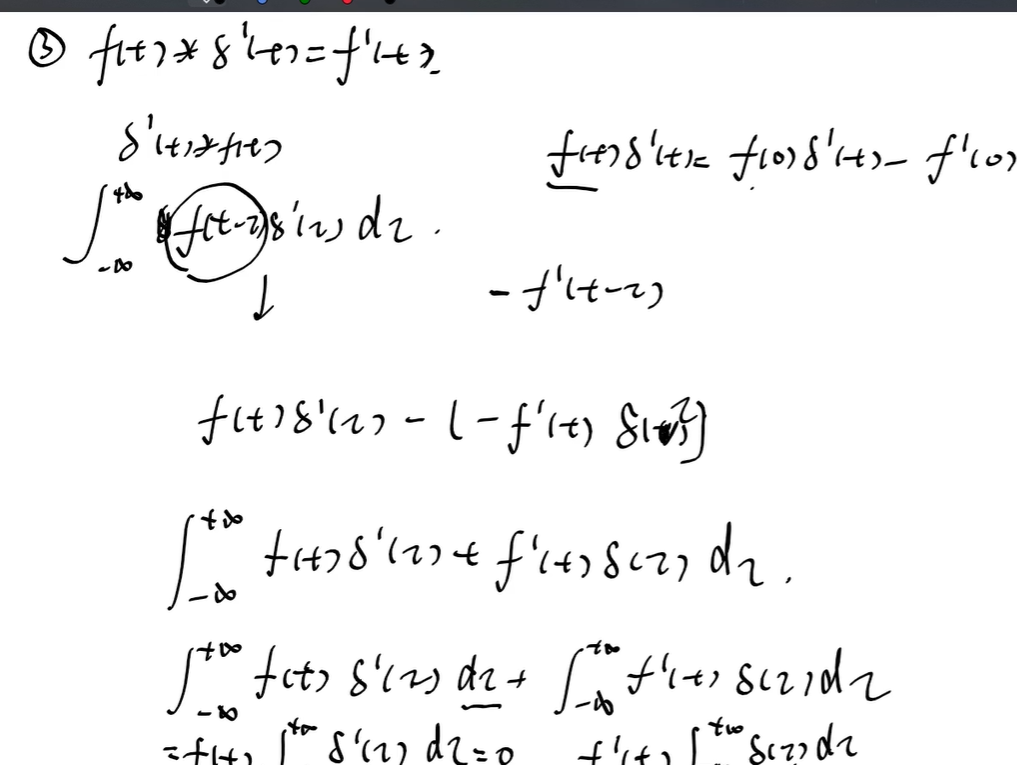 ③ f(t)*δ'(t)=f'(t)
δ'(t)*f(t)
f(t)δ'(t)= f(0)δ'(t)- f'(0)
∫_{-∞}^{+∞} f(t-τ)δ'(τ) dτ.
↓
-f'(t-τ)
f(t)δ'(τ) - [-f'(t) δ(τ)]
∫_{-∞}^{+∞} f(t)δ'(τ)+f'(t)δ(τ) dτ.
∫_{-∞}^{+∞} f(t) δ'(τ) dτ + ∫_{-∞}^{+∞} f'(t) δ(τ)dτ
=f(t) ∫^{+∞} δ'(τ) dτ=0 f'(t) ∫^{+∞} δ(τ)dτ